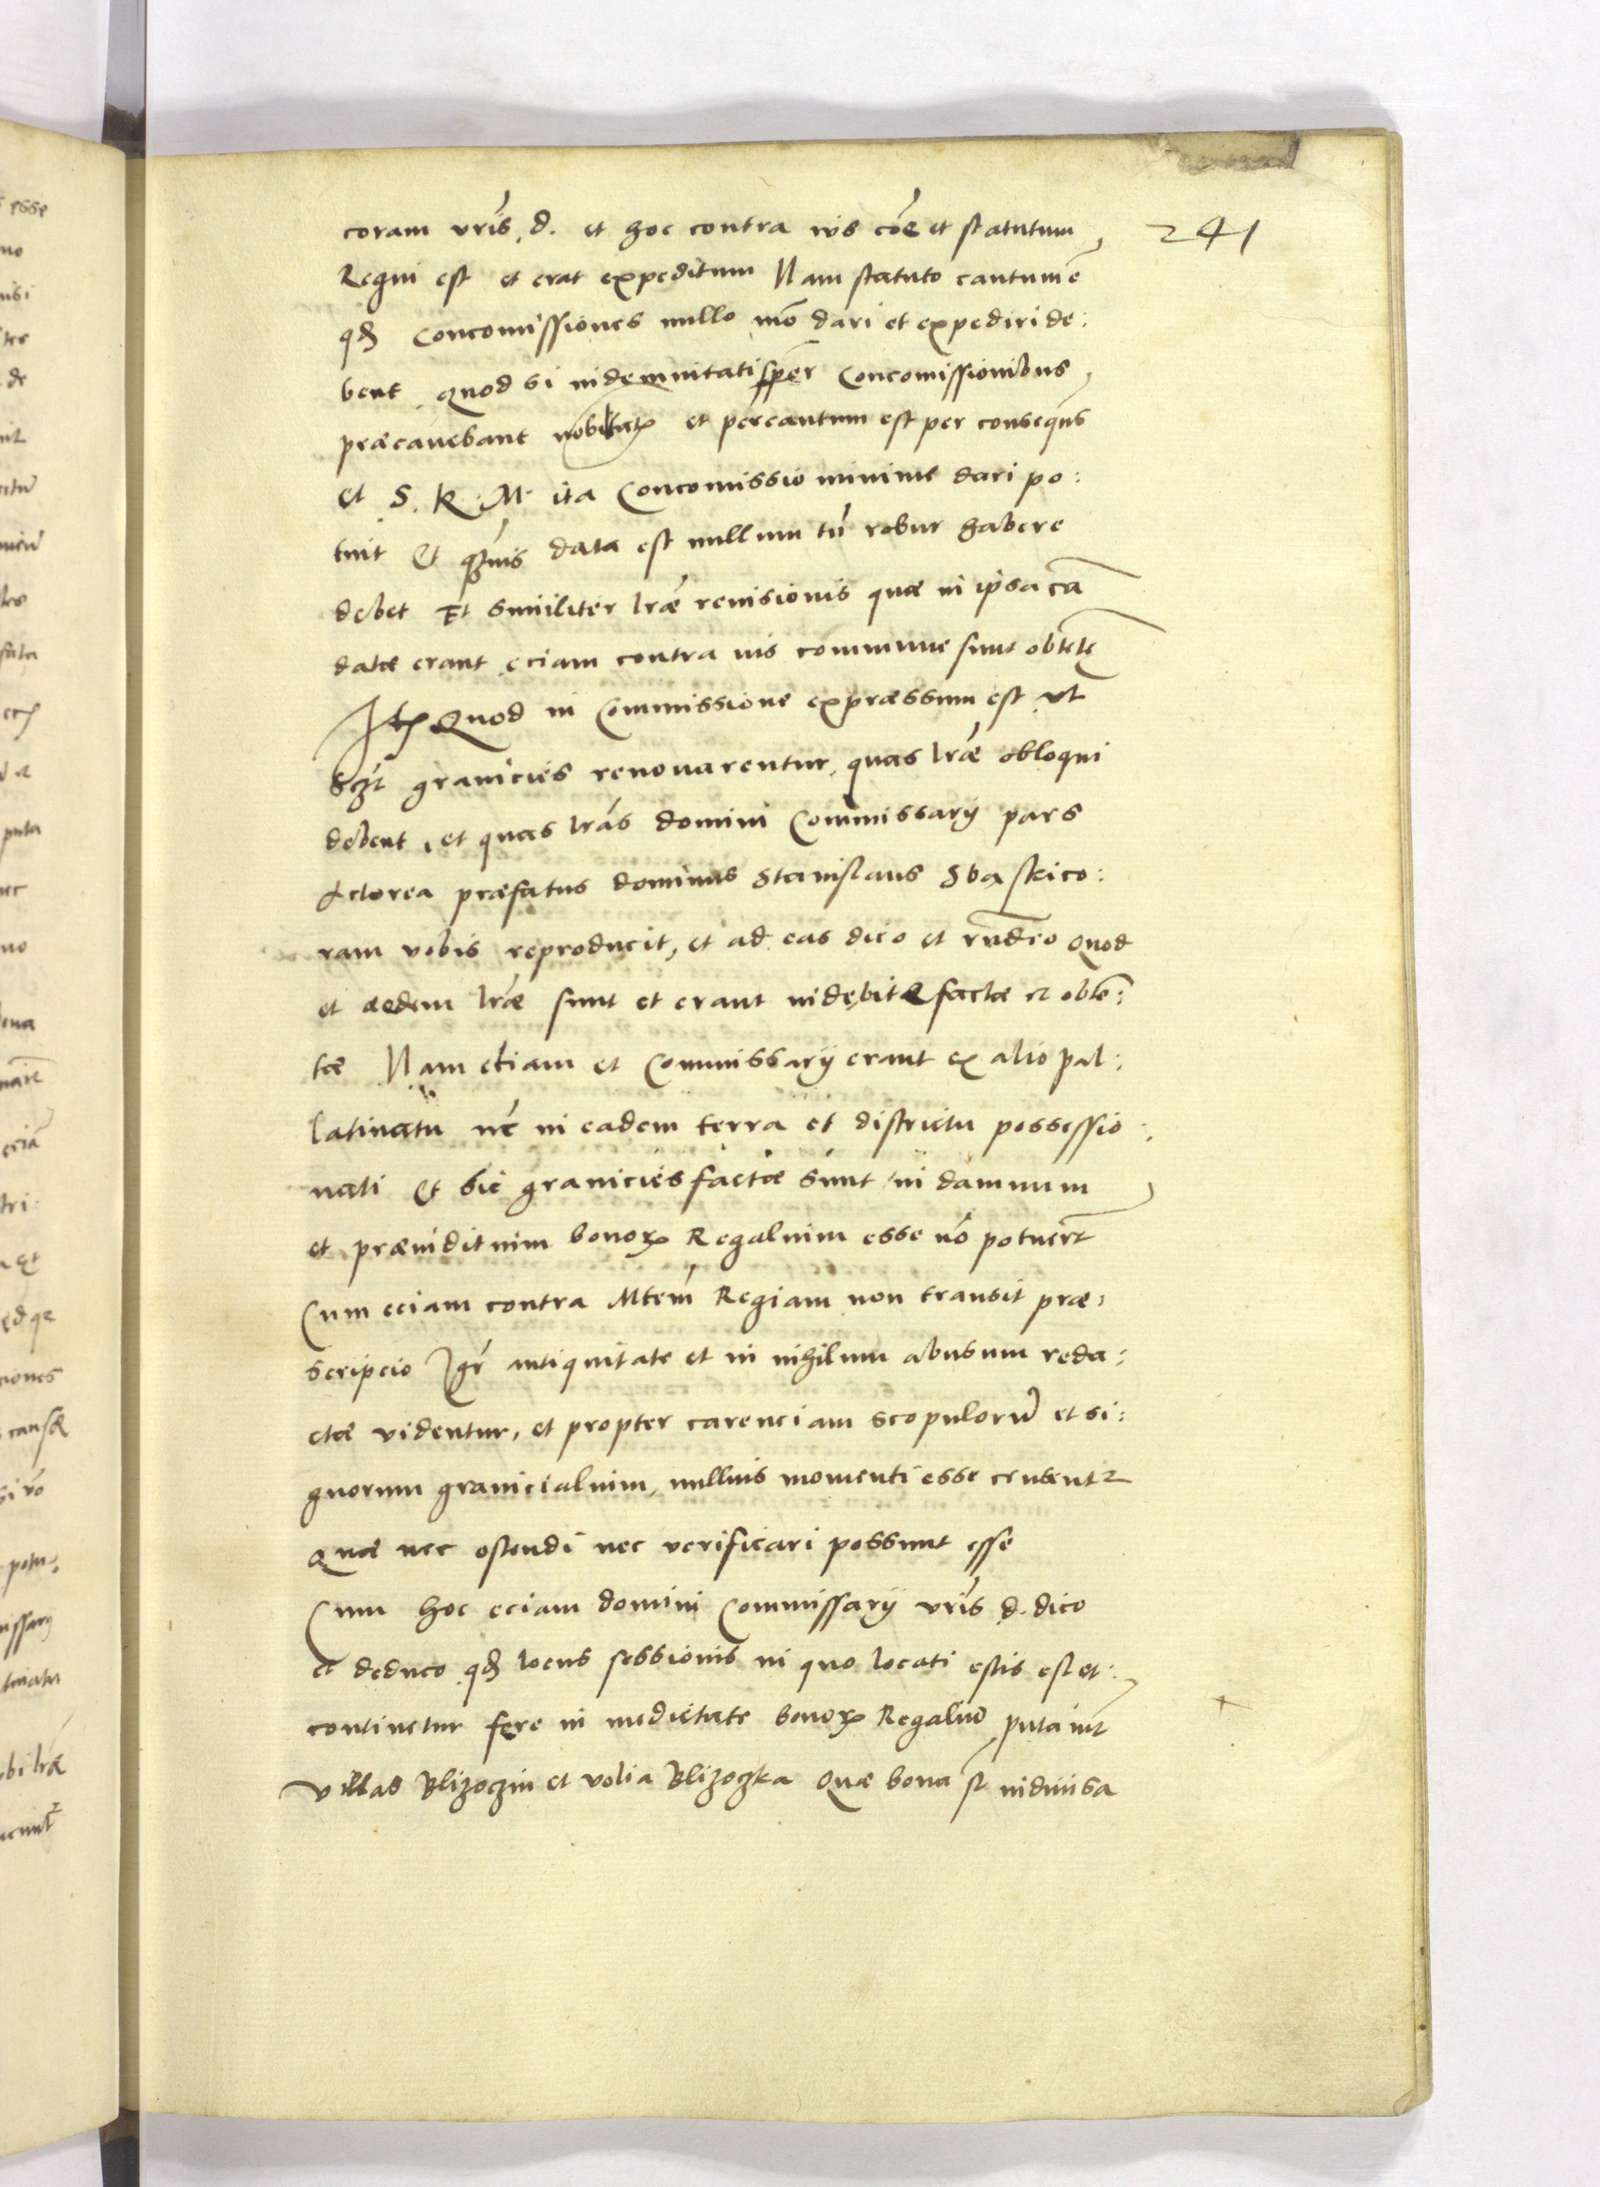 241
coram vris. d. et hoc contra ius cõe et statutum
Regni est et erat expeditum Nam statuto cautum ẽ
qd Concomissiones nullo mõ dari et expediri de:
bent quod si indemnitati super Concomissionibus
præcavebant et percautum est per consequns
et S. R. M. ita Concomissio minime dari po:
tuit Et quãuis data est nullum tñ robur habere
debet Et similiter lræ remisionis quæ in ipsa cã
datæ erant eciam contra ius commune sunt obtetę
Itɇ Quod in Commissione expræssum est ut
granicies renouarentur, quas lræ obloqui
debent, et quas lras domini Commissarij pars
Actorea præfatus dominus Stanislaus Sbąski co:
ram vobis reproducit, et ad eas dico et rñdeo quod
et aedem lræ sunt et erant indębitæ factæ et obtẽ:
tæ Nam etiam et Commissarij erant ex alio pal:
latinatu nec in eadem terra et districtu possessio:
nati Et sic granicies factæ sunt in damnum
et præiuditium bonoꝝ Regalium esse nõ potuert
Cum eciam contra Mtem Regiam non transit præ:
scripcio Igr antiquitate et in nihilum abusum reda:
ctæ videntur, et propter carenciam scopulorũ et si:
gnorum granicialium, nullius momenti esse censentr
Quæ nec ostendi nec verificari possunt esse
Cum hoc eciam domini Commissarij vris d. dico
et deduco qd locus sessionis in quo locati estis est et:
continetur fere in medietate bonoꝝ Regaliũ puta int
Villas Blizoczin et volia Blizoczka Quæ bona st indiuisa